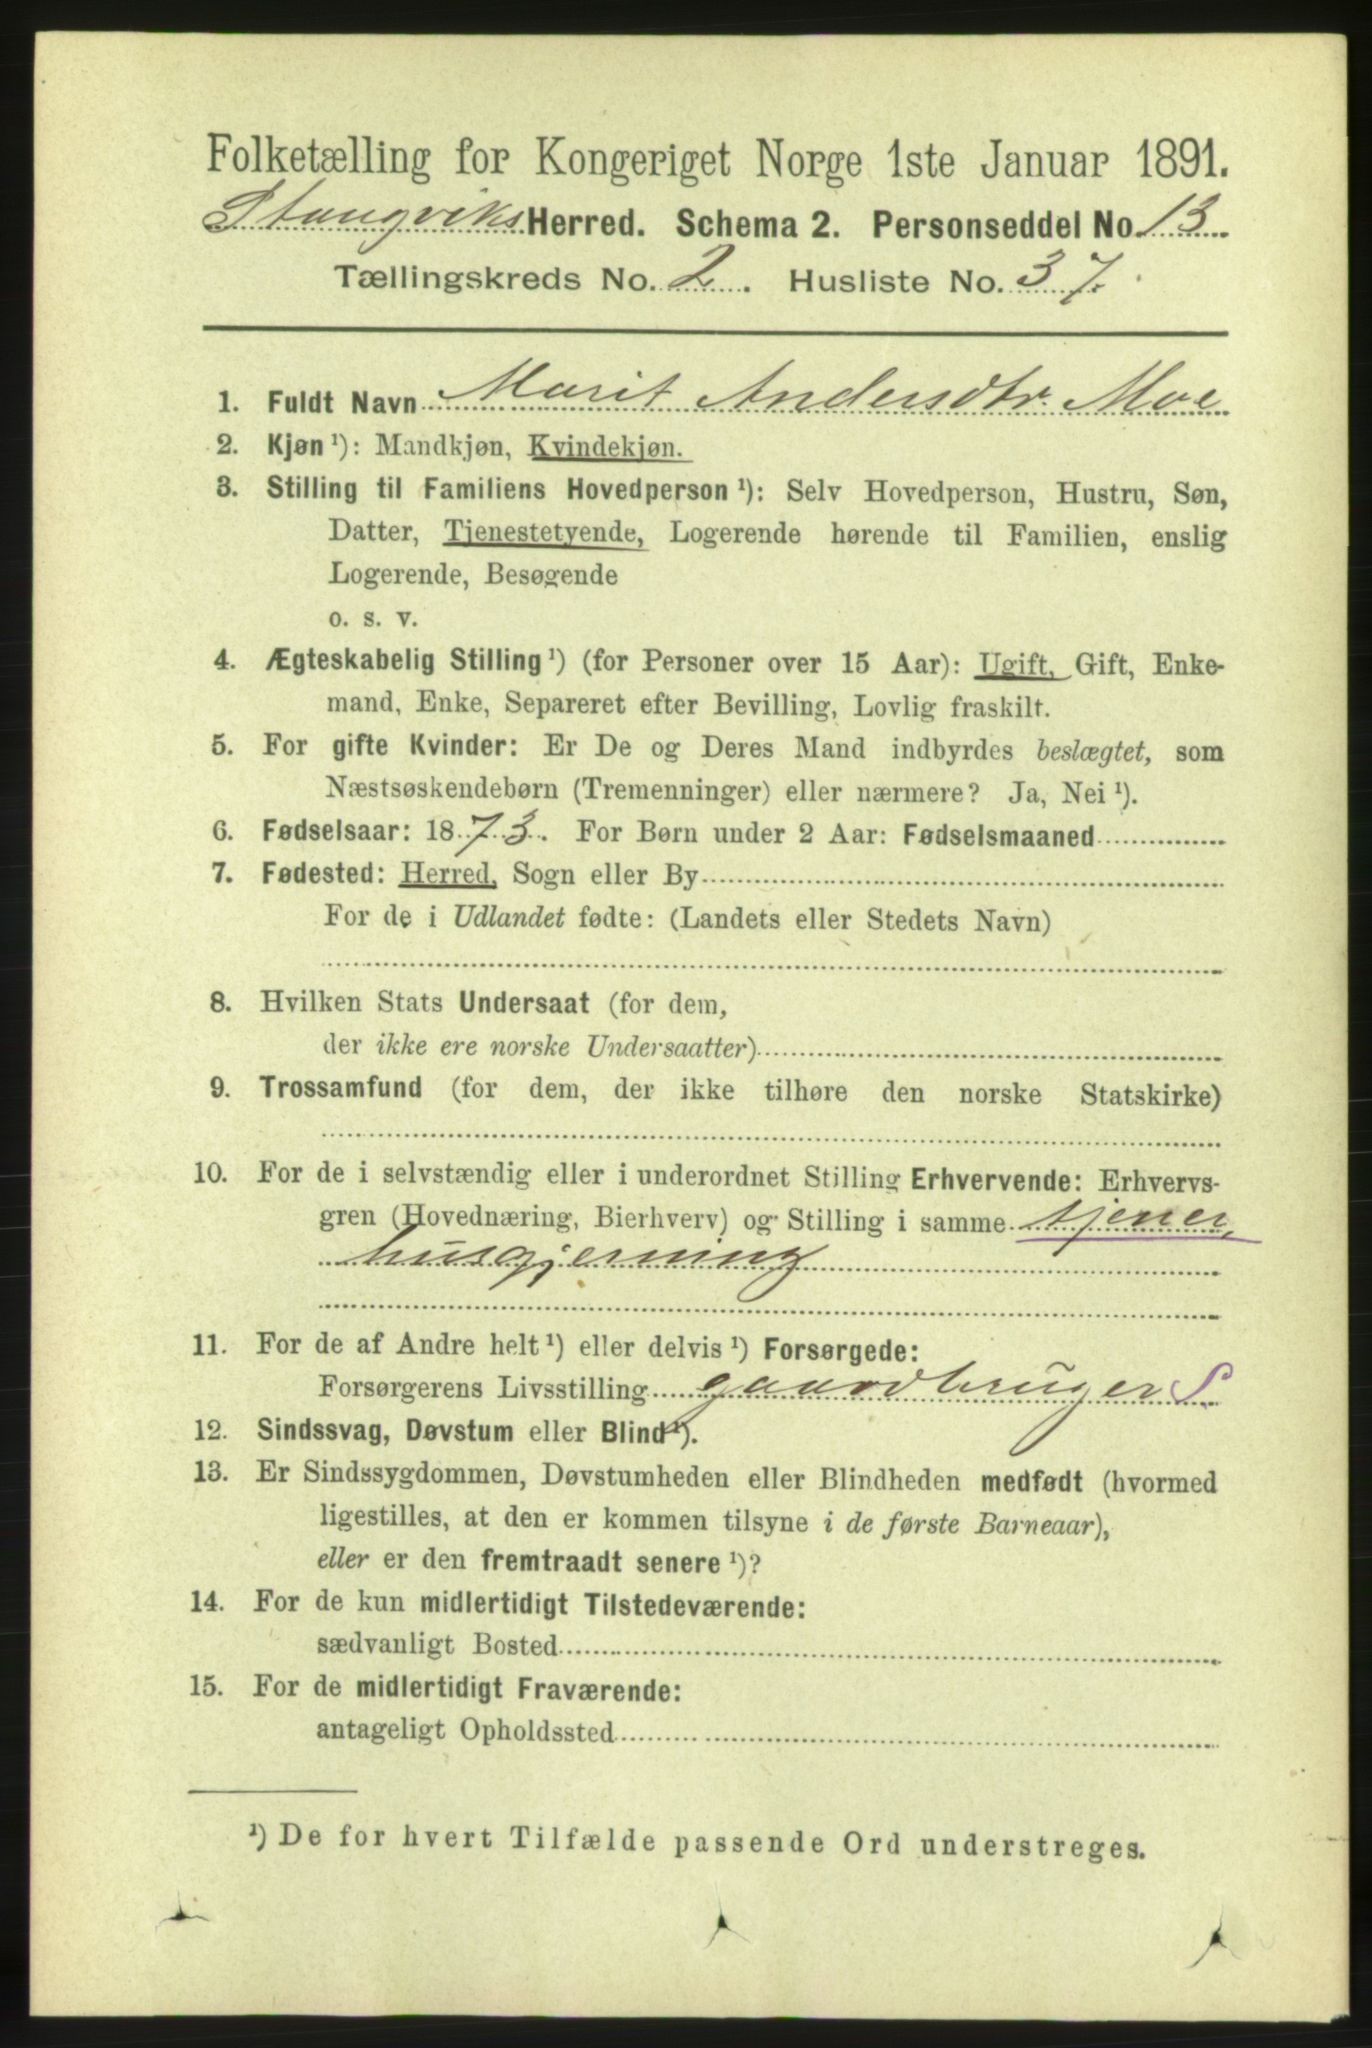 Folketælling for Kongeriget Norge 1ste Januar 1891.
Stangviks Herred. Schema 2. Personseddel No. 13
Tællingskreds No. 2. Husliste No. 37.
1. Fuldt Navn Marit Andersdtr. Moe
2. Kjøn ¹): Mandkjøn, Kvindekjøn.
3. Stilling til Familiens Hovedperson ¹): Selv Hovedperson, Hustru, Søn,
Datter, Tjenestetyende, Logerende hørende til Familien, enslig
Logerende, Besøgende
o. s. v.
4. Ægteskabelig Stilling ¹) (for Personer over 15 Aar): Ugift, Gift, Enke-
mand, Enke, Separeret efter Bevilling, Lovlig fraskilt.
5. For gifte Kvinder: Er De og Deres Mand indbyrdes beslægtet, som
Næstsøskendebørn (Tremenninger) eller nærmere? Ja, Nei ¹).
6. Fødselsaar: 1873. For Børn under 2 Aar: Fødselsmaaned
7. Fødested: Herred, Sogn eller By
For de i Udlandet fødte: (Landets eller Stedets Navn)
8. Hvilken Stats Undersaat (for dem,
der ikke ere norske Undersaatter)
9. Trossamfund (for dem, der ikke tilhøre den norske Statskirke)
10. For de i selvstændig eller i underordnet Stilling Erhvervende: Erhvervs-
gren (Hovednæring, Bierhverv) og Stilling i samme tjener,
husgjerning
11. For de af Andre helt ¹) eller delvis ¹) Forsørgede:
Forsørgerens Livsstilling gaardbruger S.
12. Sindssvag, Døvstum eller Blind ¹).
13. Er Sindssygdommen, Døvstumheden eller Blindheden medfødt (hvormed
ligestilles, at den er kommen tilsyne i de første Barneaar),
eller er den fremtraadt senere ¹)?
14. For de kun midlertidigt Tilstedeværende:
sædvanligt Bosted
15. For de midlertidigt Fraværende:
antageligt Opholdssted
¹) De for hvert Tilfælde passende Ord understreges.